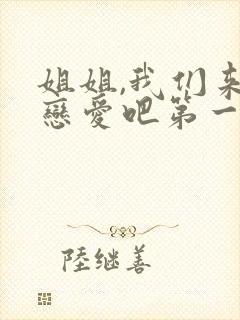 姐姐,我们来
戀爱吧第一
陸继善